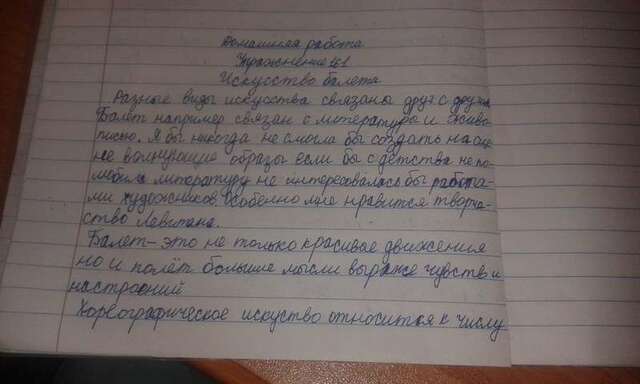 Домашняя работа
Упражнение №1
Искусство балета
Разные виды искусства связаны друг с другом
Балет например связан с литературой и живо
писью. Я бы никогда не смогла бы создать на сце
не волнующие образы если бы с детства не по
любила литературу не интересовалась бы работа
ми художников. Особенно мне нравится творче
ство Левитана.
Балет – это не только красивые движения
но и полёт большие мысли выраже чувств и
настроений
Хореографическое искуство относится к числу